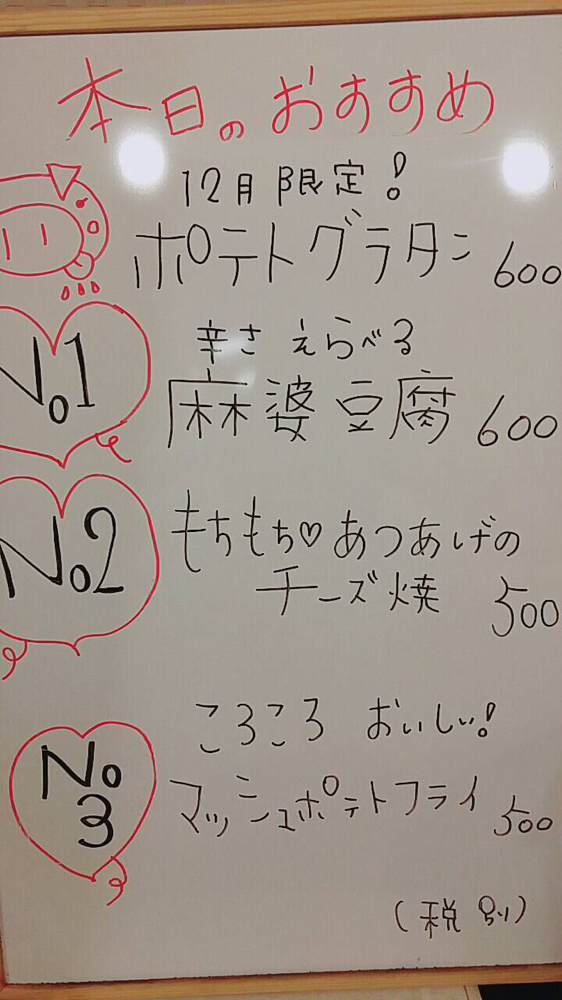 本日のおすすめ
12月限定!
ポテトグラタン 600
No1
辛さ えらべる
麻婆豆腐 600
No2
もちもち♡あつあげの
チーズ焼 500
No3
ころころ おいしい!
マッシュポテトフライ 500
(税別)